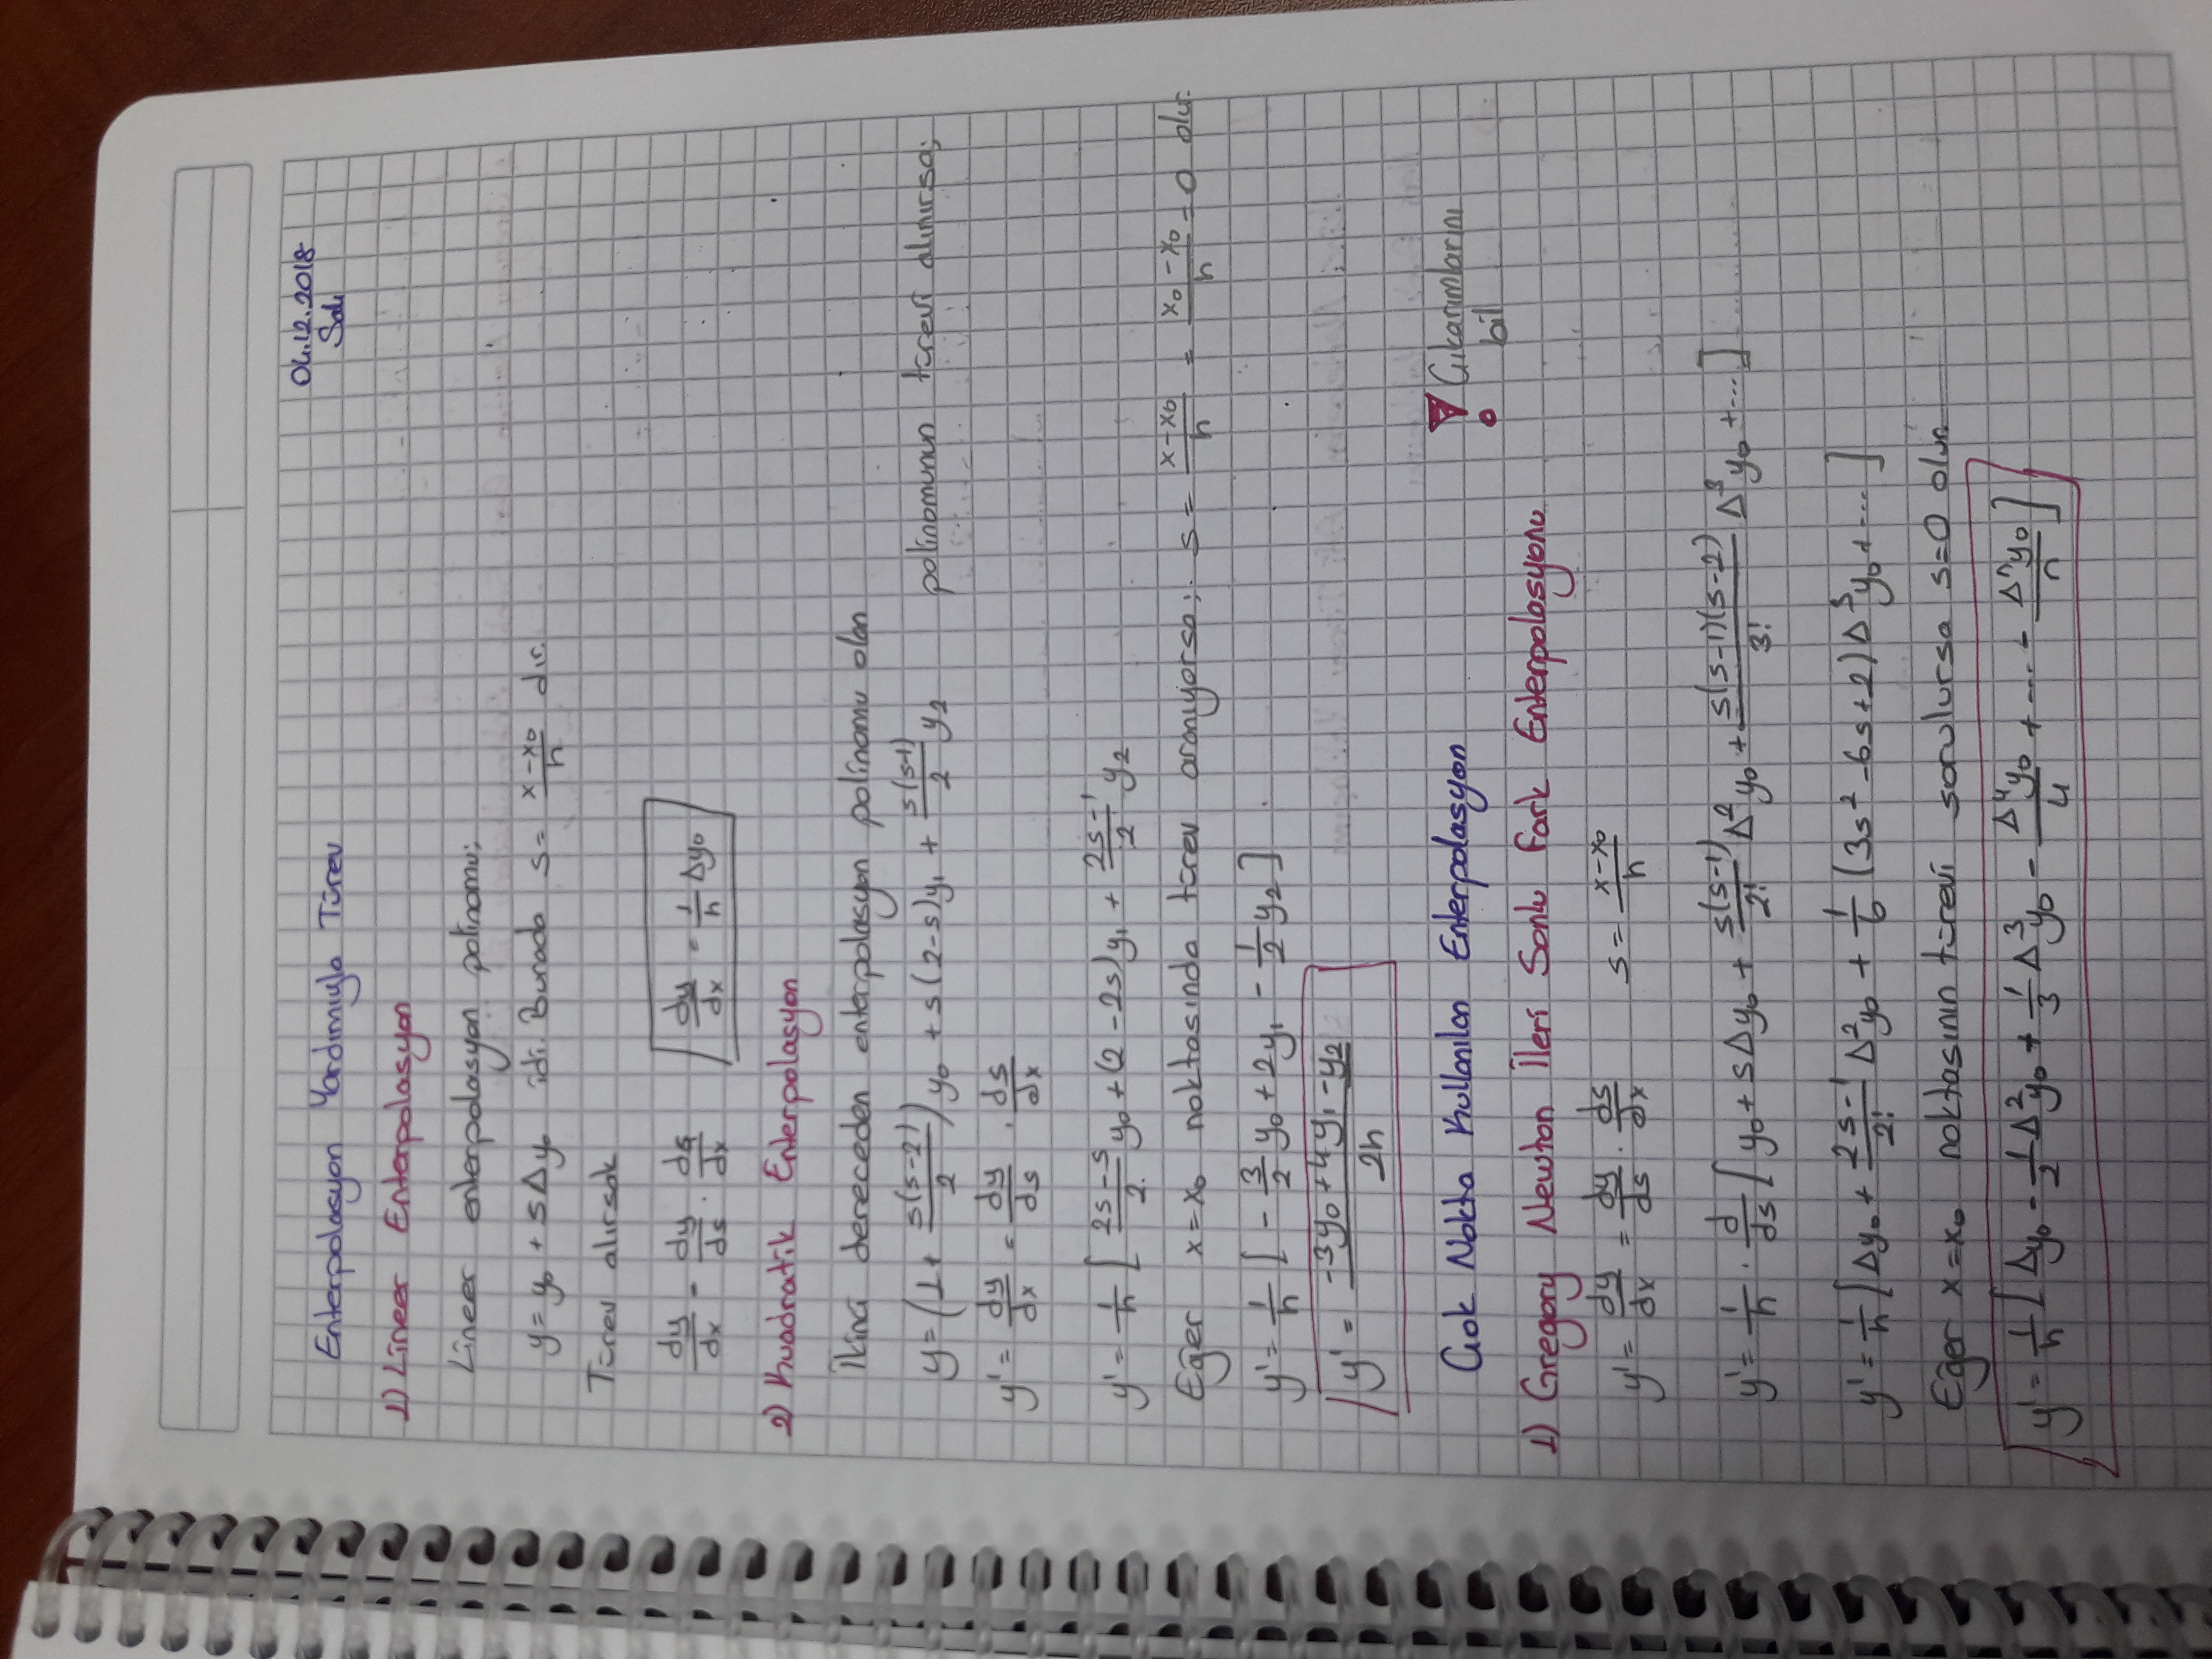 04.12.2018
Enterpolasyon Yardımıyla Türev
Salı
1) Lineer Enterpolasyon
Lineer enterpolasyon polinomu;
y = y₀ + sΔy₀ idi. Burada s = (x-x₀)/h dır.
Türev alırsak
dy/dx = dy/ds · ds/dx   dy/dx = 1/h Δy₀
2) Kuadratik Enterpolasyon
İkinci dereceden enterpolasyon polinomu olan
y = (1 + s(s-2)/2) y₀ + s(2-s)y₁ + s(s-1)/2 y₂ polinomunun türevi alınırsa;
y' = dy/dx = dy/ds · ds/dx
y' = 1/h [ (2s-s)/2 y₀ + (2-2s)y₁ + (2s-1)/2 y₂
Eğer x=x₀ noktasında türev aranıyorsa; s = (x-x₀)/h = (x₀-x₀)/h = 0 olur.
y' = 1/h [ -3/2 y₀ + 2y₁ - 1/2 y₂ ]
y' = (-3y₀+4y₁-y₂)/2h
Çok Nokta Kullanılan Enterpolasyon
! Çıkarımlarını
bil
1) Gregory Newton İleri Sonlu Fark Enterpolasyonu
y' = dy/dx = dy/ds · ds/dx   s = (x-x₀)/h
y' = 1/h · d/ds [ y₀ + sΔy₀ + s(s-1)/2! Δ²y₀ + s(s-1)(s-2)/3! Δ³y₀ + ... ]
y' = 1/h [ Δy₀ + (2s-1)/2! Δ²y₀ + 1/6 (3s²-6s+2)Δ³y₀ + ... ]
Eğer x=x₀ noktasının türevi sorulursa s=0 olur.
y' = 1/h [ Δy₀ - 1/2 Δ²y₀ + 1/3 Δ³y₀ - Δ⁴y₀/4 + ... - Δⁿy₀/n ]